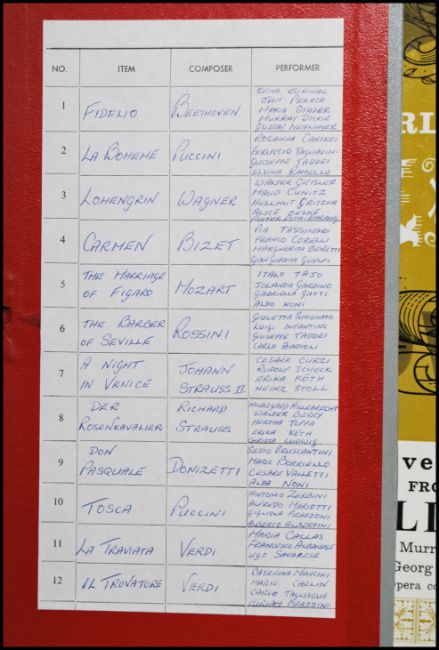 NO. ITEM COMPOSER PERFORMER
1 FIDELIO BEETHOVEN
SENA JURINAC
JAN PEERCE
MARIA STADER
MURRAY DICKIE
GUSTAV NEIDLINGER
2 LA BOHEME PUCCINI
ROSANNA CARTERI
FERUCCIO TAGLIAVINI
GUISEPPE TADDEI
ELVINA RAMELLA
3 LOHENGRIN WAGNER
WALTER GEISLER
MAUD CUNITZ
HELLMUT GRITZKA
ALICE OELKE
4 CARMEN BIZET
PIA TASSINARI
FRANCO CORELLI
MARGHERITA BENETTI
GIAN GIACOMO GUELFI
5 THE MARRIAGE
OF FIGARO
MOZART
ITALO TAJO
JOLANDA GARDINO
GABRIELLA GATTI
ALDO NONI
6 THE BARBER
OF SEVILLE
ROSSINI
GIULETTA SIMIONATO
LUIGI INFANTINO
GIUSEPPE TADDEI
CARLO BADIOLI
7 A NIGHT
IN VENICE
JOHANN
STRAUSS II
CESARE CURZI
RUDOLF SCHOCK
ERIKA KÖTH
HEINZ STOLL
8 DER
ROSENKAVALIER
RICHARD
STRAUSS
HILDEGARD HILLEBRECHT
WALTER BERRY
HERTHA TOPPA
ERIKA KÖTH
CHRISTA LUDWIG
9 DON
PASQUALE
DONIZETTI
SESTO BRUSCANTINI
MARIO BORRIELLO
CESARE VALLETTI
ALDA NONI
10 TOSCA PUCCINI
ANTONIO ZERBINI
ALFREDO MARIOTTI
GIGLIOLA FRAZZONI
11 LA TRAVIATA VERDI
MARIA CALLAS
FRANCESCO ALBANESE
UGO SAVARESE
12 IL TROVATORE VERDI
CATERINA MANCINI
MARIO CARLIN
CARLO TAGLIABUE
MIRIAM PIRAZZINI
RL
ve
FRO
LI
Murr
Georg
Opera co